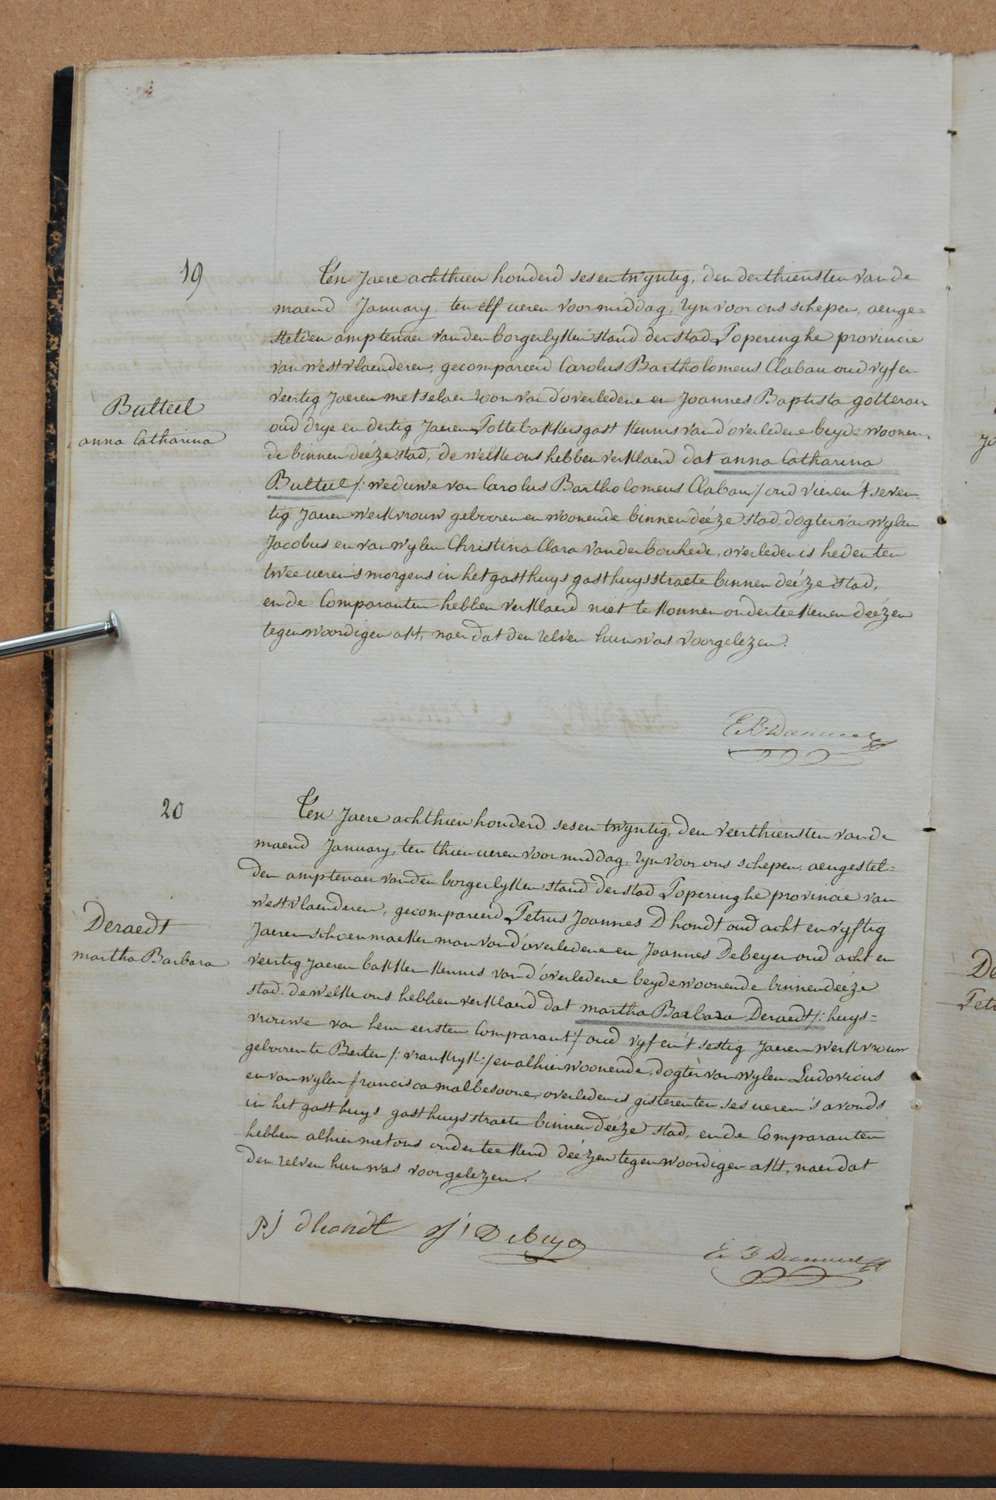 19
Ten Jaere achthien honderd ses en twyntig, den derthiensten van de
maend January, ten elf ueren voormiddag, zyn voor ons schepen, aenge=
stelden amptenaer van den borgerlyken stand der stad Poperinghe provincie
van westvlaenderen, gecompareerd Carolus Bartholomeus Clabau oud vyf en
veertig Jaeren metselaer zoon van d'overledene en Joannes Baptista gotteran
oud drye en dertig Jaeren Pottebakkersgast kennis van d'overledene beyde woonen-
Butteel
anna Catharina
de binnen deéze stad, de welke ons hebben verklaerd dat anna Catharina
Butteel /: weduwe van Carolus Bartholomeus Clabau / oud vier en 't seven
tig Jaeren werkvrouw geboren en woonende binnen deéze stad dogter van wylen
Jacobus en van wylen Christina Clara Vanderbouhede, overleden is heden ten
twee ueren s morgens in het gasthuys gasthuysstraete binnen deéze stad,
en de Comparanten hebben verklaerd niet te konnen onderteekenen deézen
tegenwoordigen akt, naer dat den zelven hun was voorgelezen.
20
Ten Jaere achthien honderd ses en twyntig, den veerthiensten van de
maend January, ten thien ueren voormiddag, zyn voor ons schepen, aengestel=
den amptenaer van den borgerlyken stand der stad Poperinghe provincie van
westvlaenderen, gecompareerd, Petrus Joannes D hondt oud acht en vyftig
Jaeren schoenmaeker man van d'overledene en Joannes Debeyer oud acht en
Deraedt
martha Barbara
veertig Jaeren bakker kennis van d'overledene beyde woonende binnen deéze
stad. de welke ons hebben verklaerd dat martha Barbara Deraedt /: huys=
vrouwe van hem eersten Comparant / oud vyf en 't sestig Jaeren werkvrouw
geboren te Berten /: vrankryk :/ en alhier woonende, dogter van wylen Ludovicus
en van wylen francisca malbesoone, overleden is gisteren ten ses ueren 's avonds
in het gasthuys gasthuysstraete binnen deéze stad, en de Comparanten
hebben alhier met ons onderteekend deézen tegenwoordigen akt, naer dat
den zelven hun was voorgelezen.
PJ dhondt